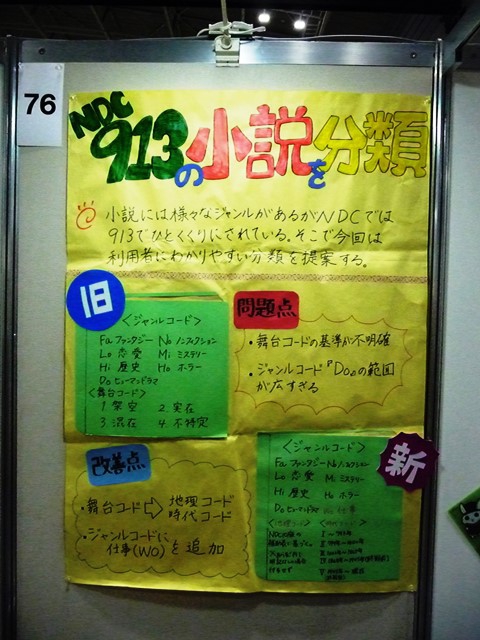 76
NDC
913の小説を分類
小説には様々なジャンルがあるがNDCでは
913でひとくくりにされている。そこで今回は
利用者にわかりやすい分類を提案する。
旧
<ジャンルコード>
Fa ファンタジー No ノンフィクション
Lo 恋愛 Mi ミステリー
Hi 歴史 Ho ホラー
Do ヒューマンドラマ
<舞台コード>
1 架空 2. 実在
3. 混在 4. 不特定
問題点
・舞台コードの基準が不明確
・ジャンルコード『Do』の範囲
が広すぎる
改善点
・舞台コード⇨地理コード
時代コード
・ジャンルコードに
仕事(WO)を追加
新
<ジャンルコード>
Fa ファンタジー No ノンフィクション
Lo 恋愛 Mi ミステリー
Hi 歴史 Ho ホラー
Do ヒューマンドラマ Wo 仕事